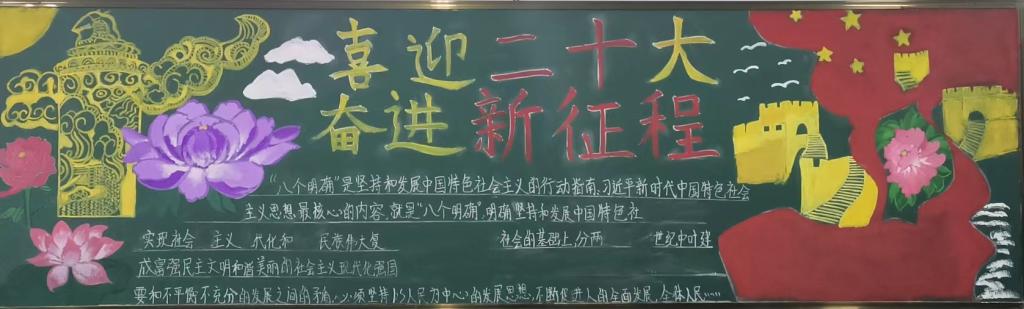 喜迎二十大
奋进新征程
"八个明确"是坚持和发展中国特色社会主义的行动指南,习近平新时代中国特色社会
主义思想最核心的内容,就是"八个明确"明确坚持和发展中国特色社
实现社会 主义 代化和 民族伟大复 社会的基础上,分两 世纪中叶建
成富强民主文明和谐美丽的社会主义现代化强国
要和不平衡不充分的发展之间的矛盾,必须坚持以人民为中心的发展思想,不断促进人的全面发展、全体人民……